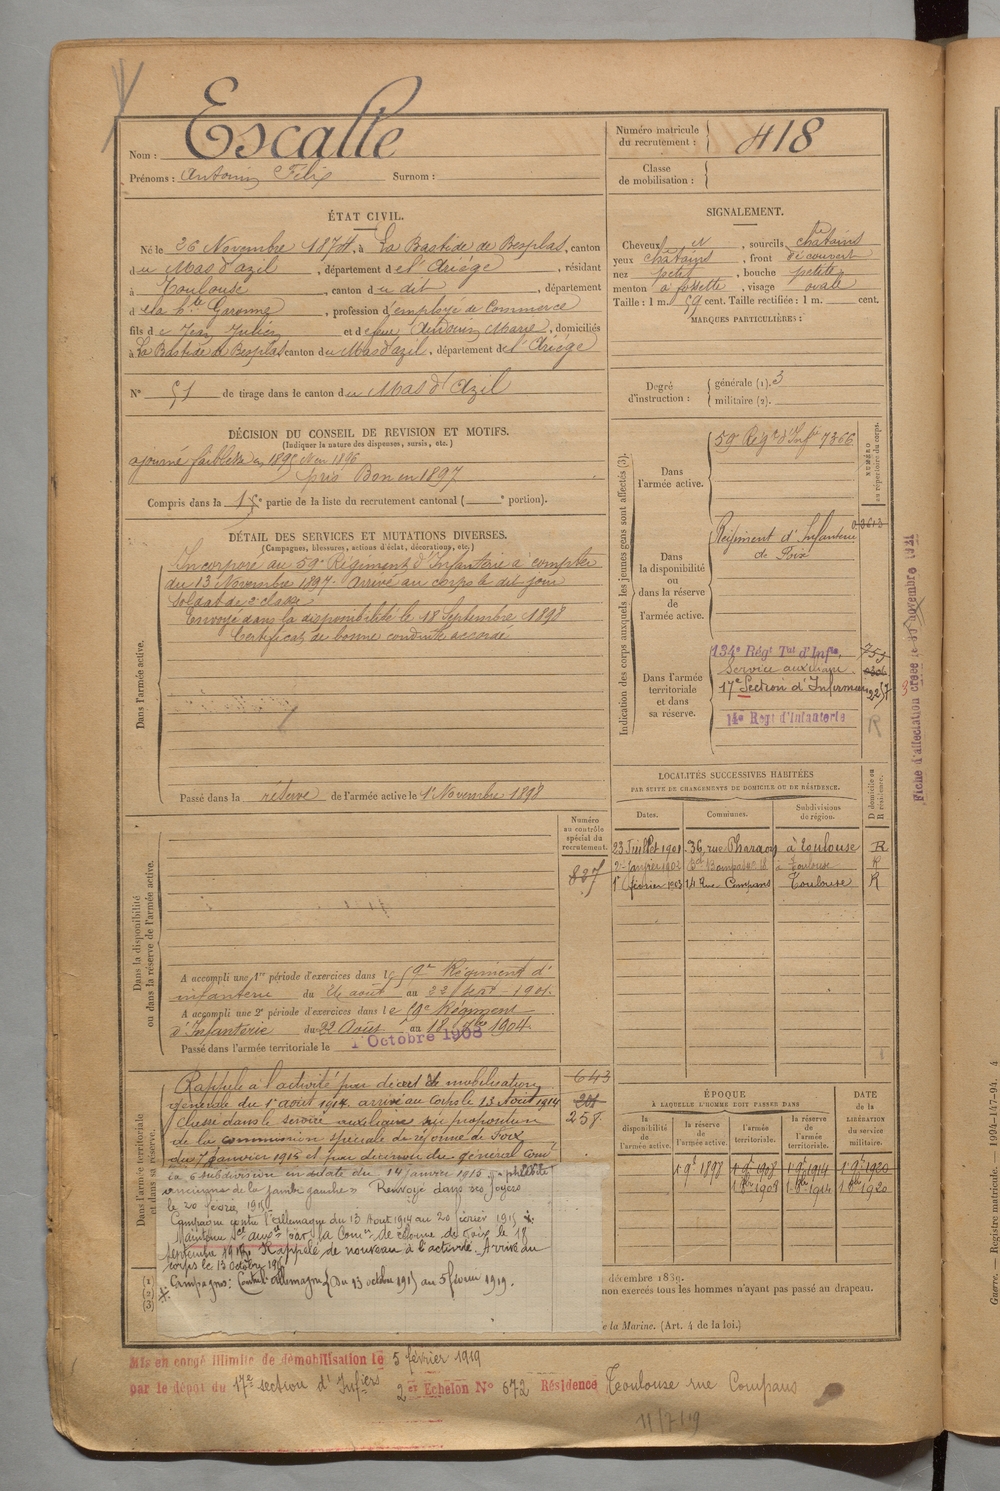 Nom : Escalle
Prénoms : Antonin Félix Surnom :
Numéro matricule du recrutement : 418
Classe de mobilisation :
ÉTAT CIVIL.
Né le 26 Novembre 1874, à La Bastide de Besplas, canton
du Mas d'azil, département de l'Ariège, résidant
à Toulouse, canton du dit, département
de la Hte Garonne, profession d'employé de Commerce
fils de Jean Julien et de feue Antonin Marie, domiciliés
à La Bastide de Besplas canton du Mas d'azil, département de l'Ariège
N° 51 de tirage dans le canton du Mas d'Azil
SIGNALEMENT.
Cheveux N, sourcils châtains
yeux châtains, front découvert
nez petit, bouche petite
menton à fossette, visage ovale
Taille : 1 m. 59 cent. Taille rectifiée : 1 m. cent.
MARQUES PARTICULIÈRES :
Degré d'instruction : générale (1). 3
militaire (2).
DÉCISION DU CONSEIL DE REVISION ET MOTIFS.
(Indiquer la nature des dispenses, sursis, etc.)
ajourné faiblesse en 1895 et en 1896
pris Bon en 1897
Compris dans la 1e partie de la liste du recrutement cantonal ( e portion).
DÉTAIL DES SERVICES ET MUTATIONS DIVERSES.
(Campagnes, blessures, actions d'éclat, décorations, etc.)
Dans l'armée active.
Incorporé au 59e Régiment d'Infanterie à compter
du 13 Novembre 1897. Arrivé au corps le dit jour
soldat de 2e classe
Envoyé dans la disponibilité le 18 Septembre 1898
Certificat de bonne conduite accordé
Passé dans la réserve de l'armée active le 1er Novembre 1898
Indication des corps auxquels les jeunes gens sont affectés (3).
NUMÉRO au répertoire du corps.
Dans l'armée active.
59e Régt d'Infie 7366
Dans la disponibilité ou dans la réserve de l'armée active.
Régiment d'Infanterie
de Foix
Dans l'armée territoriale et dans sa réserve.
134e Régt Tal d'Infie.
Service auxiliaire
17e Section d'Infirmiers
14e Régt d'Infanterie
R
Fiche d'affectation créée le novembre 1921
LOCALITÉS SUCCESSIVES HABITÉES
PAR SUITE DE CHANGEMENTS DE DOMICILE OU DE RÉSIDENCE.
Dates. Communes. Subdivisions de région. D domicile ou R résidence.
23 Juillet 1901 36, rue Pharaon à Toulouse R
2 Janvier 1902 à Toulouse R
1er février 1903 14 Rue Compans Toulouse R
Dans la disponibilité ou dans la réserve de l'armée active.
Numéro au contrôle spécial du recrutement.
837
A accompli une 1re période d'exercices dans le 59e Régiment d'
infanterie du 26 août au 22 Sept 1901.
A accompli une 2e période d'exercices dans le 59e Régiment
d'Infanterie du 22 Août au 18 7bre 1904.
Passé dans l'armée territoriale le 1 Octobre 1908
Dans l'armée territoriale et dans sa réserve.
643
258
Rappelé à l'activité par décret de mobilisation
générale du 1er août 1914 arrivé au Corps le 13 Août 1914
Classé dans le service auxiliaire sur proposition
de la commission spéciale de réforme de Foix
du 7 Janvier 1915 et par décision du général Comt
la subdivision en date du 14 janvier 1915 "phlébite
ancienne de la jambe gauche" Renvoyé dans ses foyers
le 20 février 1915
Campagne contre l'Allemagne du 13 Aout 1914 au 20 février 1915
Maintenu Sce auxre par la Comon de réforme de Foix le 18
septembre 1915 Rappelé de nouveau à l'activité. Arrivé au
corps le 13 octobre 1915
Campagne : Contre l'Allemagne (Du 13 octobre 1915 au 5 février 1919.
ÉPOQUE
À LAQUELLE L'HOMME DOIT PASSER DANS
la disponibilité de l'armée active. la réserve de l'armée active. l'armée territoriale. la réserve de l'armée territoriale.
DATE de la LIBÉRATION du service militaire.
1 9e 1898 1 9e 1908 1 9e 1914 1 9e 1920
1 8bre 1908 1 8bre 1914 1 8bre 1920
décembre 1889.
non exercés tous les hommes n'ayant pas passé au drapeau.
de la Marine. (Art. 4 de la loi.)
Mis en congé illimité de démobilisation le 5 février 1919
par le dépôt du 17e section d'Infiers 2er Echelon N° 672 Résidence Toulouse rue Compans
11/7/19
Guerre. — Registre matricule. — 1994-147-94. 4